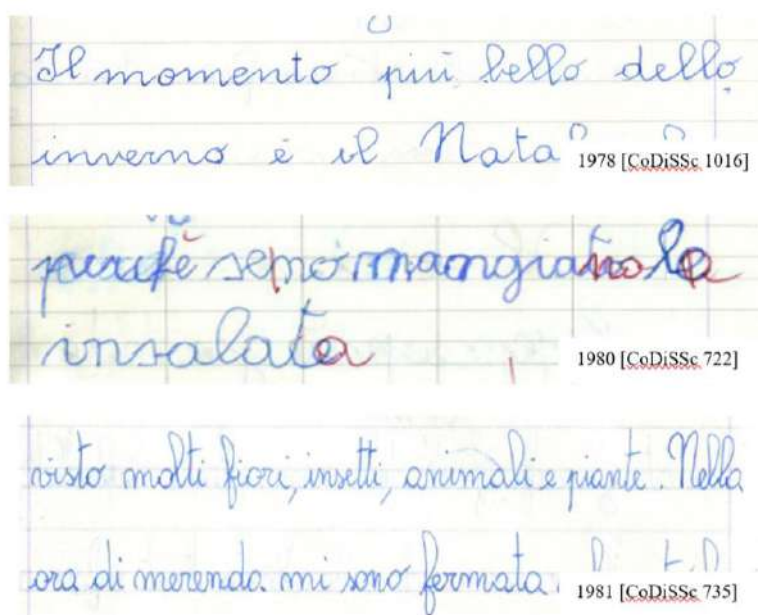 Il momento più bello dello
inverno è il Nata
1978 [CoDiSSc 1016]
mangiano la
insalata
1980 [CoDiSSc 722]
visto molti fiori, insetti, animali e piante. Nella
ora di merenda mi sono fermata
1981 [CoDiSSc 735]